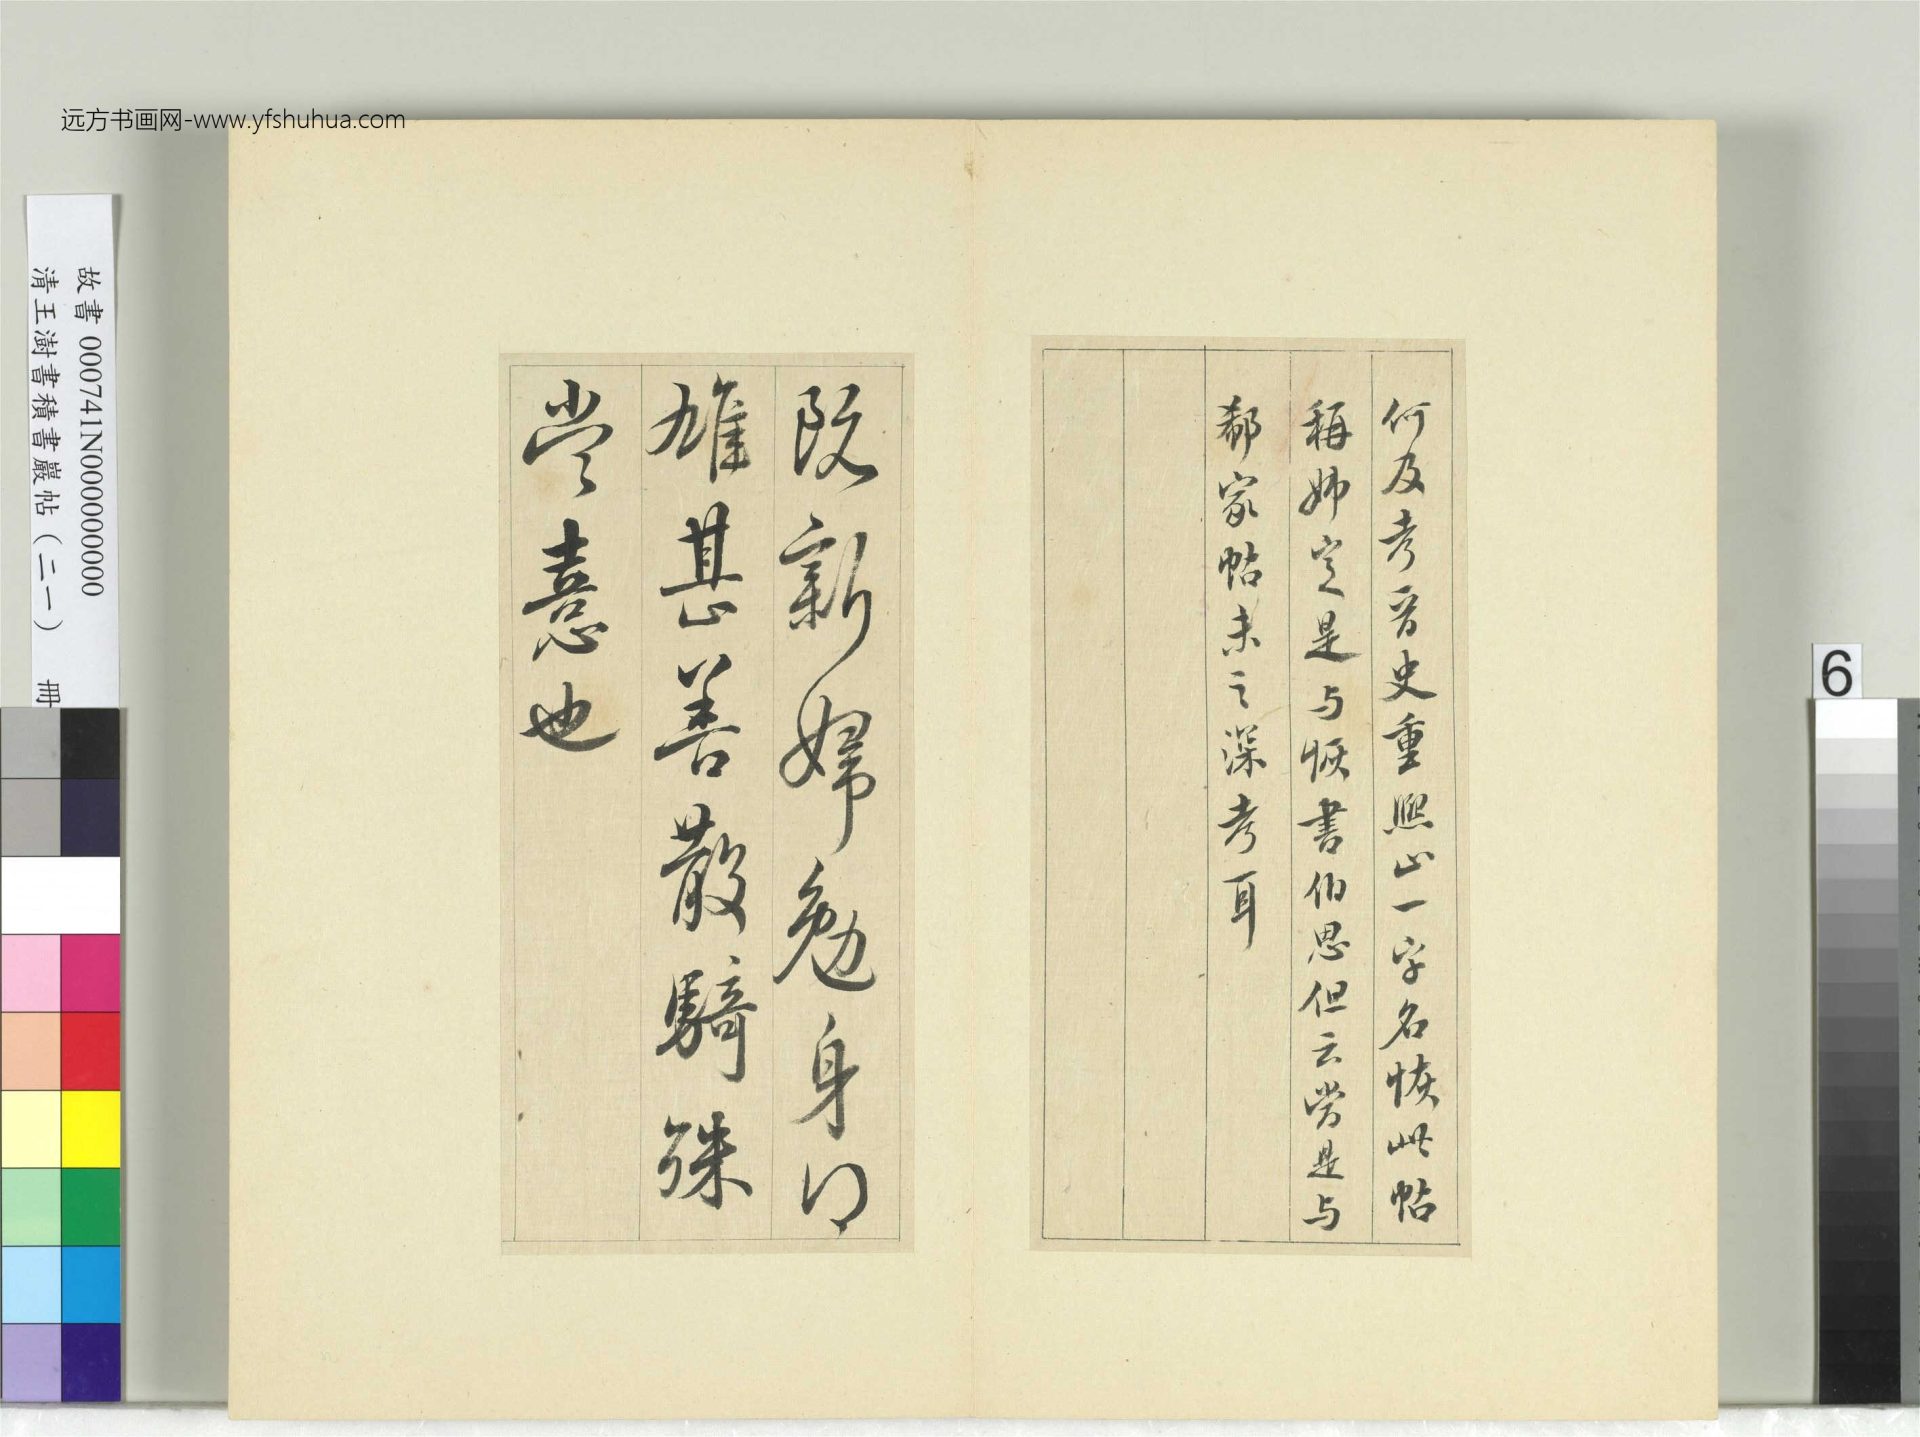 远方书画网-www.yfshuhua.com
故書 000741N000000000
清王澍書積書巖帖(二一) 冊
何及考晉史重熙止一字名恢此帖
稱姊定是与恢書伯思但云當是与
郗家帖未之深考耳
阮新婦勉身得
雄甚善散騎殊
當憙也
6